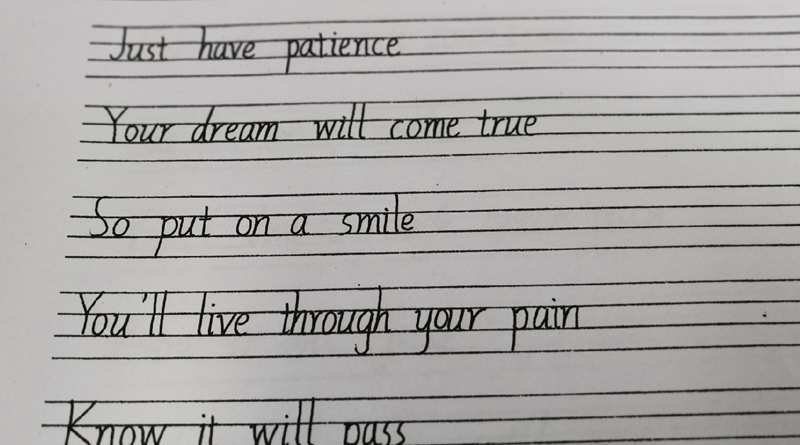 Just have patience
Your dream will come true
So put on a smile
You'll live through your pain
Know it will pass